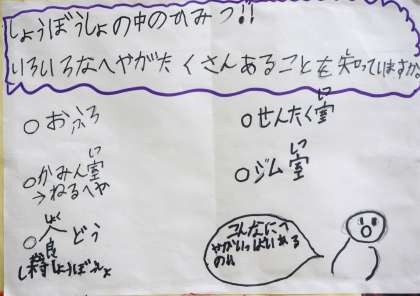 しょうぼうしょの中のひみつ!!
いろいろなへやがたくさんあることを知っていますか
○おふろ
○かみん室
→ねるへや
○食どう
しょうぼうしょ
○せんたく室
○ジム室
こんなにへ
やがいっぱいある
のね